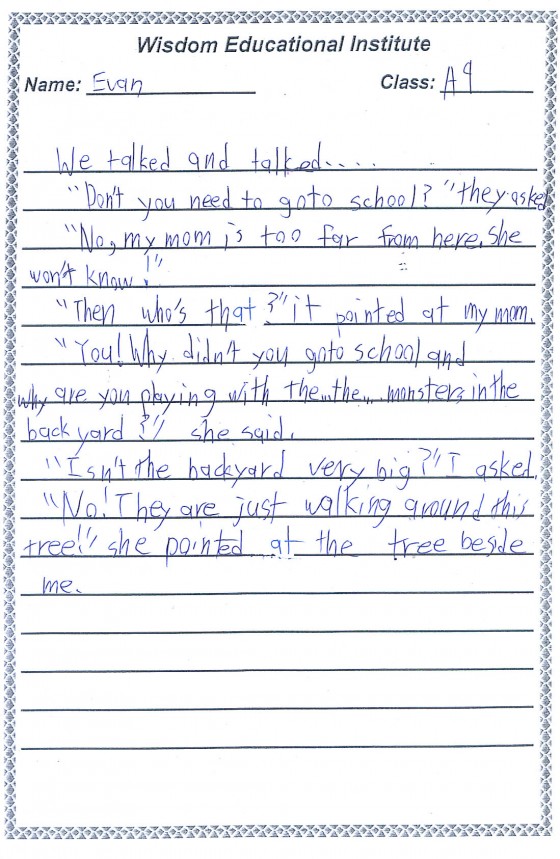 Wisdom Educational Institute
Name: Evan Class: A9
We talked and talked....
"Don't you need to goto school?" they asked
"No, my mom is too far from here, she
won't know!"
"Then who's that?" it pointed at my mom.
"You! Why didn't you goto school and
why are you playing with the...the... monsters in the
back yard?" she said.
"Isn't the backyard very big?" I asked.
"No! They are just walking around this
tree!" she pointed at the tree beside
me.